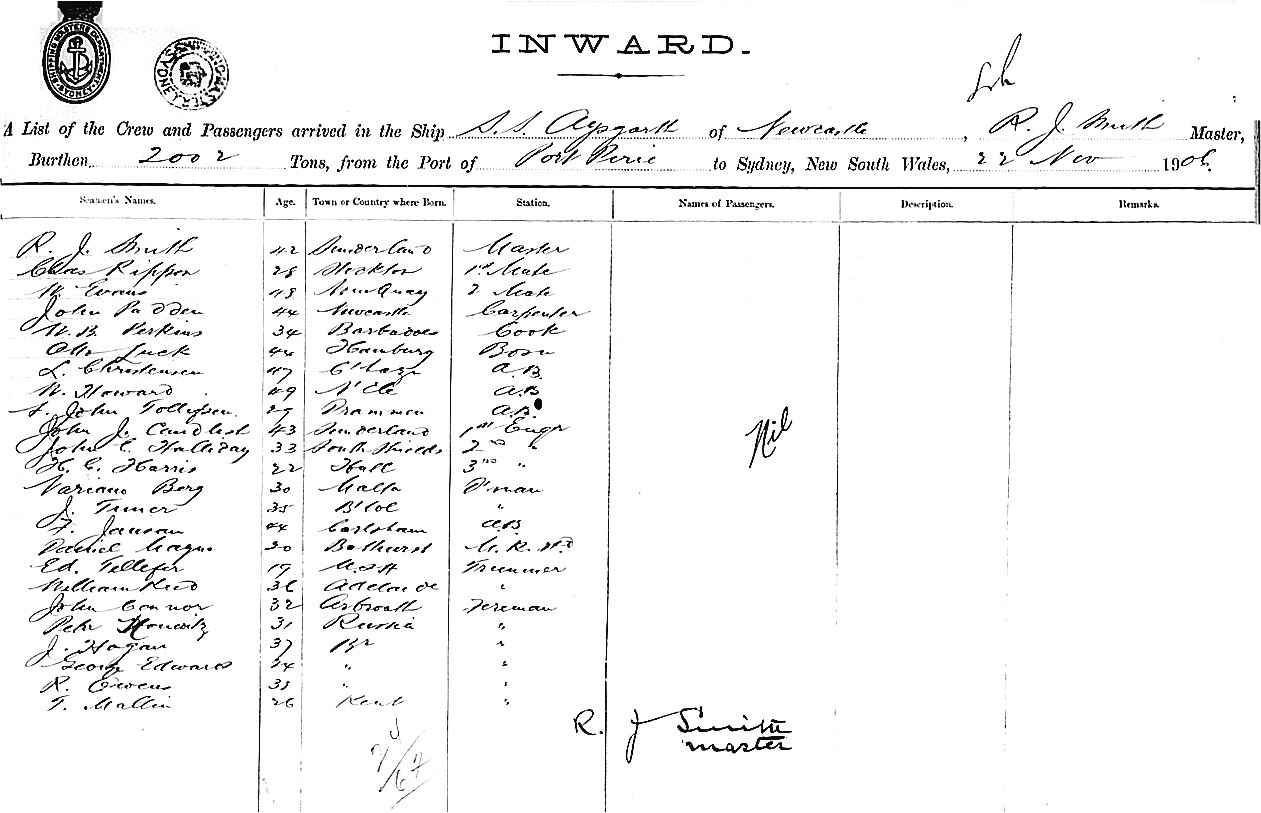 INWARD.
A List of the Crew and Passengers arrived in the Ship S.S. Aysgarth of Newcastle, R. J. Smith Master,
Burthen 2002 Tons, from the Port of Port Pirie to Sydney, New South Wales, 22 Nov 1906.
Seamen's Names. Age. Town or Country where Born. Station. Names of Passengers. Description. Remarks.
R. J. Smith 42 Sunderland Master
Chas Rippon 28 Stockton 1st Mate
W. Evans 48 New Quay 2 Mate
John Padden 44 Newcastle Carpenter
W. B. Perkins 34 Barbadoes Cook
Otto Luck 44 Hamburg Bosn
L. Christensen 47 A.B.
W. Howard 49 N'Cle A.B
John Tollefsen 29 Drammen A.B.
John J. Candlish 43 Sunderland 1st Engr
John E. Halliday 33 South Shields 2nd "
H. C. Harris 22 Hull 3rd "
Nil
Variano Borg 30 Malta F'man
J. Turner 35 B'tol "
F. Jansan 44 Carlsham A.B
Daniel 20 Bathurst M. R. Std
Ed. Tellefer 19 Trimmer
William Reid 36 Adelaide "
John Connor 32 Arbroath Fireman
Petr Horwitz 31 Russia "
J. Hogan 37 "
George Edwards 24 " "
R. Owens 35 " "
T. Mallin 26 Kent "
R. J Smith
master